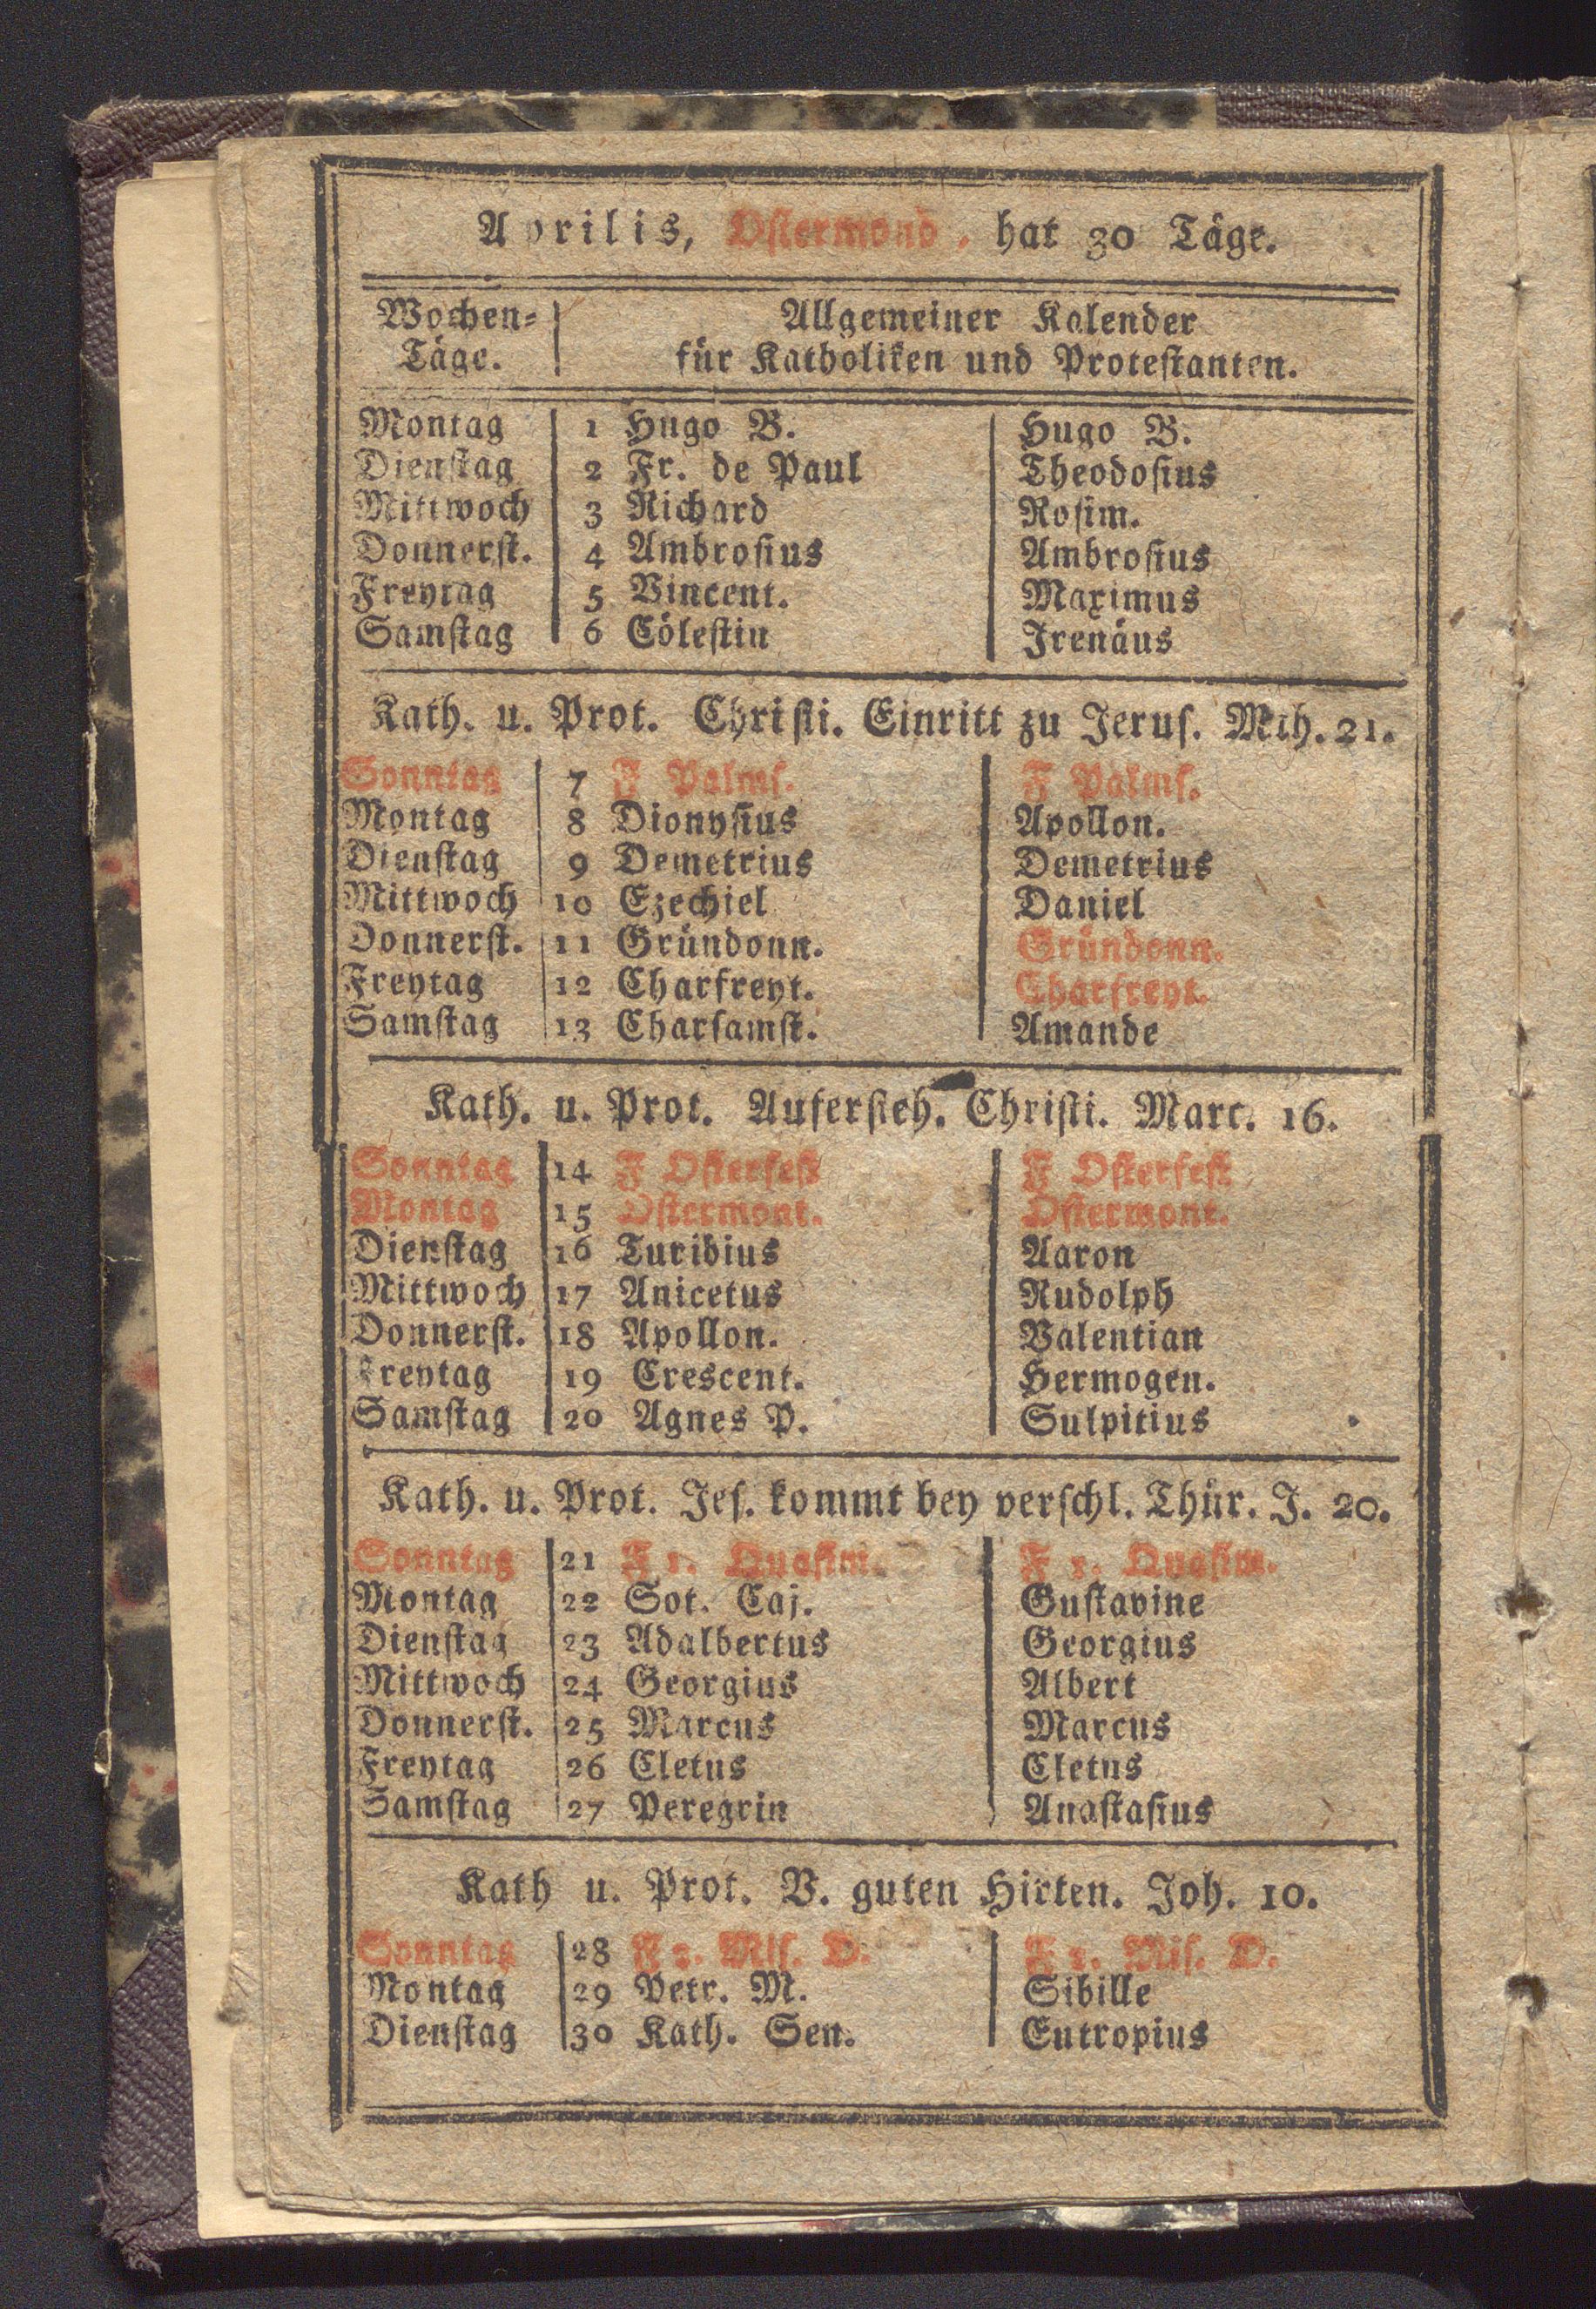 Aprilis, Ostermond, hat 30 Täge.
Wochen= Allgemeiner Kalender
Täge. für Katholiken und Protestanten.
Montag 1 Hugo B. Hugo B.
Dienstag 2 Fr. de Paul Theodosius
Mittwoch 3 Richard Rosim.
Donnerst. 4 Ambrosius Ambrosius
Freytag 5 Vincent. Maximus
Samstag 6 Cölestin Irenäus
Kath. u. Prot. Christi. Einritt zu Jerus. Mth. 21.
Sonntag 7 F Palms. F Palms.
Montag 8 Dionysius Apollon.
Dienstag 9 Demetrius Demetrius
Mittwoch 10 Ezechiel Daniel
Donnerst. 11 Gründonn. Gründonn.
Freytag 12 Charfreyt. Charfreyt.
Samstag 13 Charsamst. Amande
Kath. u. Prot. Aufersteh. Christi. Marc. 16.
Sonntag 14 F Osterfest F Osterfest
Montag 15 Ostermont. Ostermont.
Dienstag 16 Turibius Aaron
Mittwoch 17 Anicetus Rudolph
Donnerst. 18 Apollon. Valentian
Freytag 19 Crescent. Hermogen.
Samstag 20 Agnes P. Sulpitius
Kath. u. Prot. Jes. kommt bey verschl. Thür. J. 20.
Sonntag 21 F 1. Quasim. F 1. Quasim.
Montag 22 Sot. Caj. Gustavine
Dienstag 23 Adalbertus Georgius
Mittwoch 24 Georgius Albert
Donnerst. 25 Marcus Marcus
Freytag 26 Cletus Cletus
Samstag 27 Peregrin Anastasius
Kath u. Prot. V. guten Hirten. Joh. 10.
Sonntag 28 F 2. Mis. D. F 2. Mis. D.
Montag 29 Petr. M. Sibille
Dienstag 30 Kath. Sen. Eutropius